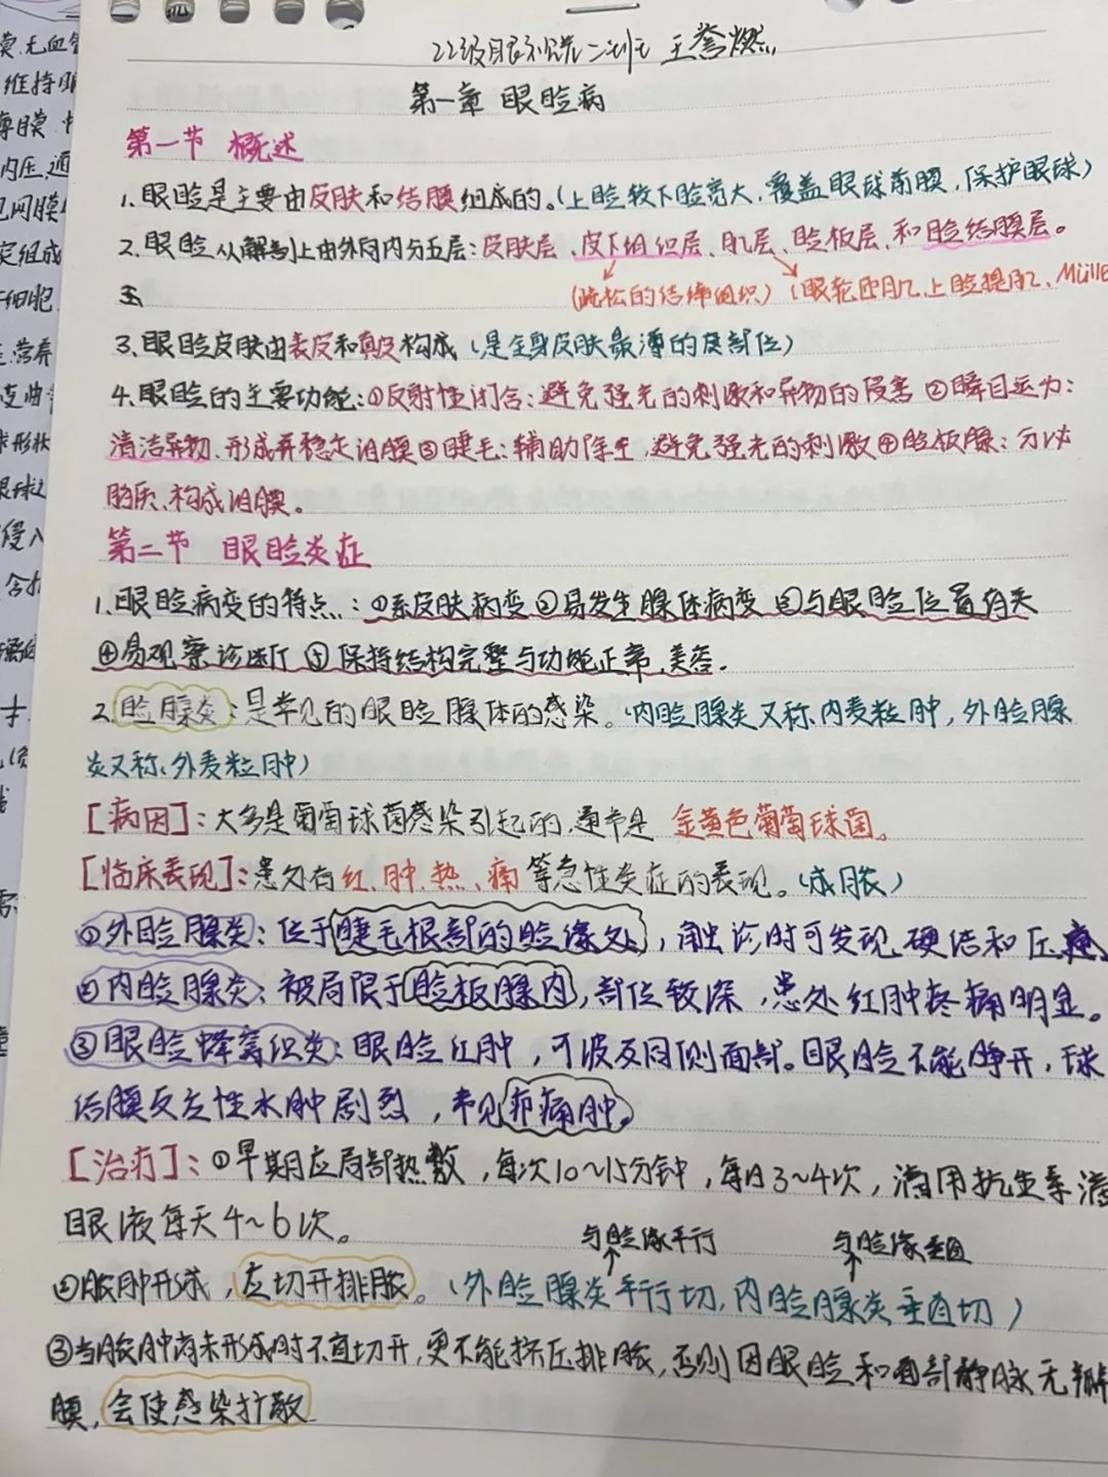 22级眼视光二班 王誉燃
第一章 眼睑病
第一节 概述
1、眼睑是主要由皮肤和结膜组成的。(上睑较下睑宽大,覆盖眼球前膜,保护眼球)
2、眼睑从解剖上由外向内分五层:皮肤层、皮下组织层、肌层、睑板层、和睑结膜层。
(疏松的结缔组织) (眼轮匝肌、上睑提肌、Mülle
3、眼睑皮肤由表皮和真皮构成(是全身皮肤最薄的皮部位)
4、眼睑的主要功能:①反射性闭合:避免强光的刺激和异物的侵害 ②瞬目运力:
清洁异物、形成并稳定泪膜③睫毛:辅助除尘,避免强光的刺激④睑板腺:分泌
脂质、构成泪膜。
第二节 眼睑炎症
1、眼睑病变的特点:①系皮肤病变②易发生腺体病变③与眼睑位置有关
④易观察诊断疗⑤保持结构完整与功能正常,美容。
2、睑腺炎:是常见的眼睑腺体的感染。(内睑腺炎又称、内麦粒肿,外睑腺
炎又称、外麦粒肿)
[病因]:大多是葡萄球菌感染引起的,通常是 金黄色葡萄球菌。
[临床表现]:患处有红、肿、热、痛等急性炎症的表现。(成脓)
①外睑腺炎:位于睫毛根部的睑缘处,触诊时可发现硬结和压痛
②内睑腺炎:被局限于睑板腺内,部位较深,患处红肿疼痛明显。
③眼睑蜂窝织炎:眼睑红肿,可波及同侧面部。眼睑不能睁开,球
结膜反应性水肿剧烈,常见
[治疗]:①早期应局部热敷,每次10~15分钟,每日3~4次,滴用抗生素滴
眼液每天4~6次。
与睑缘平行 与睑缘垂直
②脓肿形成,应切开排脓。(外睑腺炎平行切,内睑腺炎垂直切)
③当脓肿尚未形成时不宜切开,更不能挤压排脓,否则因眼睑和面部静脉无瓣
膜,会使感染扩散